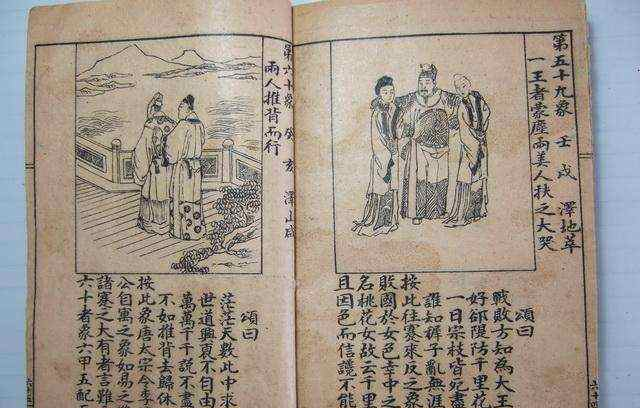 第五十九象 壬戌 澤地萃
一王者蒙塵兩美人扶之大哭
頌曰
戰敗方知為大王
好郤隄防千里花
一日宗枝皆死盡
誰知褲子亂無涯
按此往賽來反之象
敗國於女色幸中之
名桃花女故云千里
且因色而信讒不能
第六十象 癸亥 澤山咸
兩人推背而行
頌曰
茫茫天數此中求
世道興衰不自由
萬萬千千說不盡
不如推背去歸休
按此象唐太宗令李
公自寓之象如易之
諸賽之大有者言雖
六十者象六甲五配